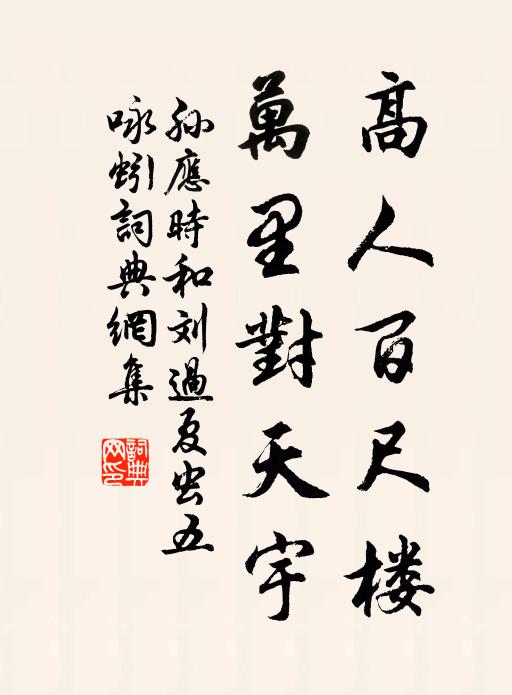 高人百尺楼
萬里對天宇
孫應時和刘過夏虫五
咏蚓詞典網集
詞典
网印